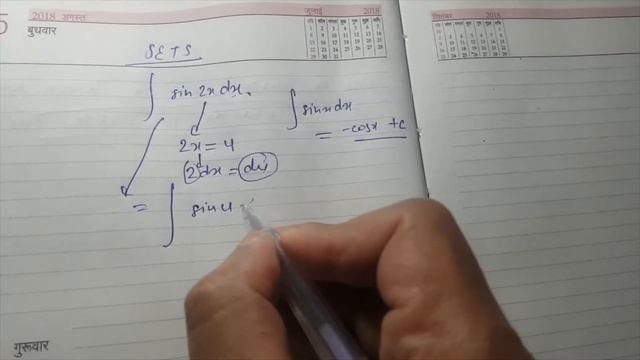 2018 अगस्त
बुधवार
जुलाई 2018
सितम्बर 2018
SETS
∫ sin 2x dx.
∫ sinx dx
= -cosx + c
2x = u
2dx = du
= ∫ sin u
गुरूवार